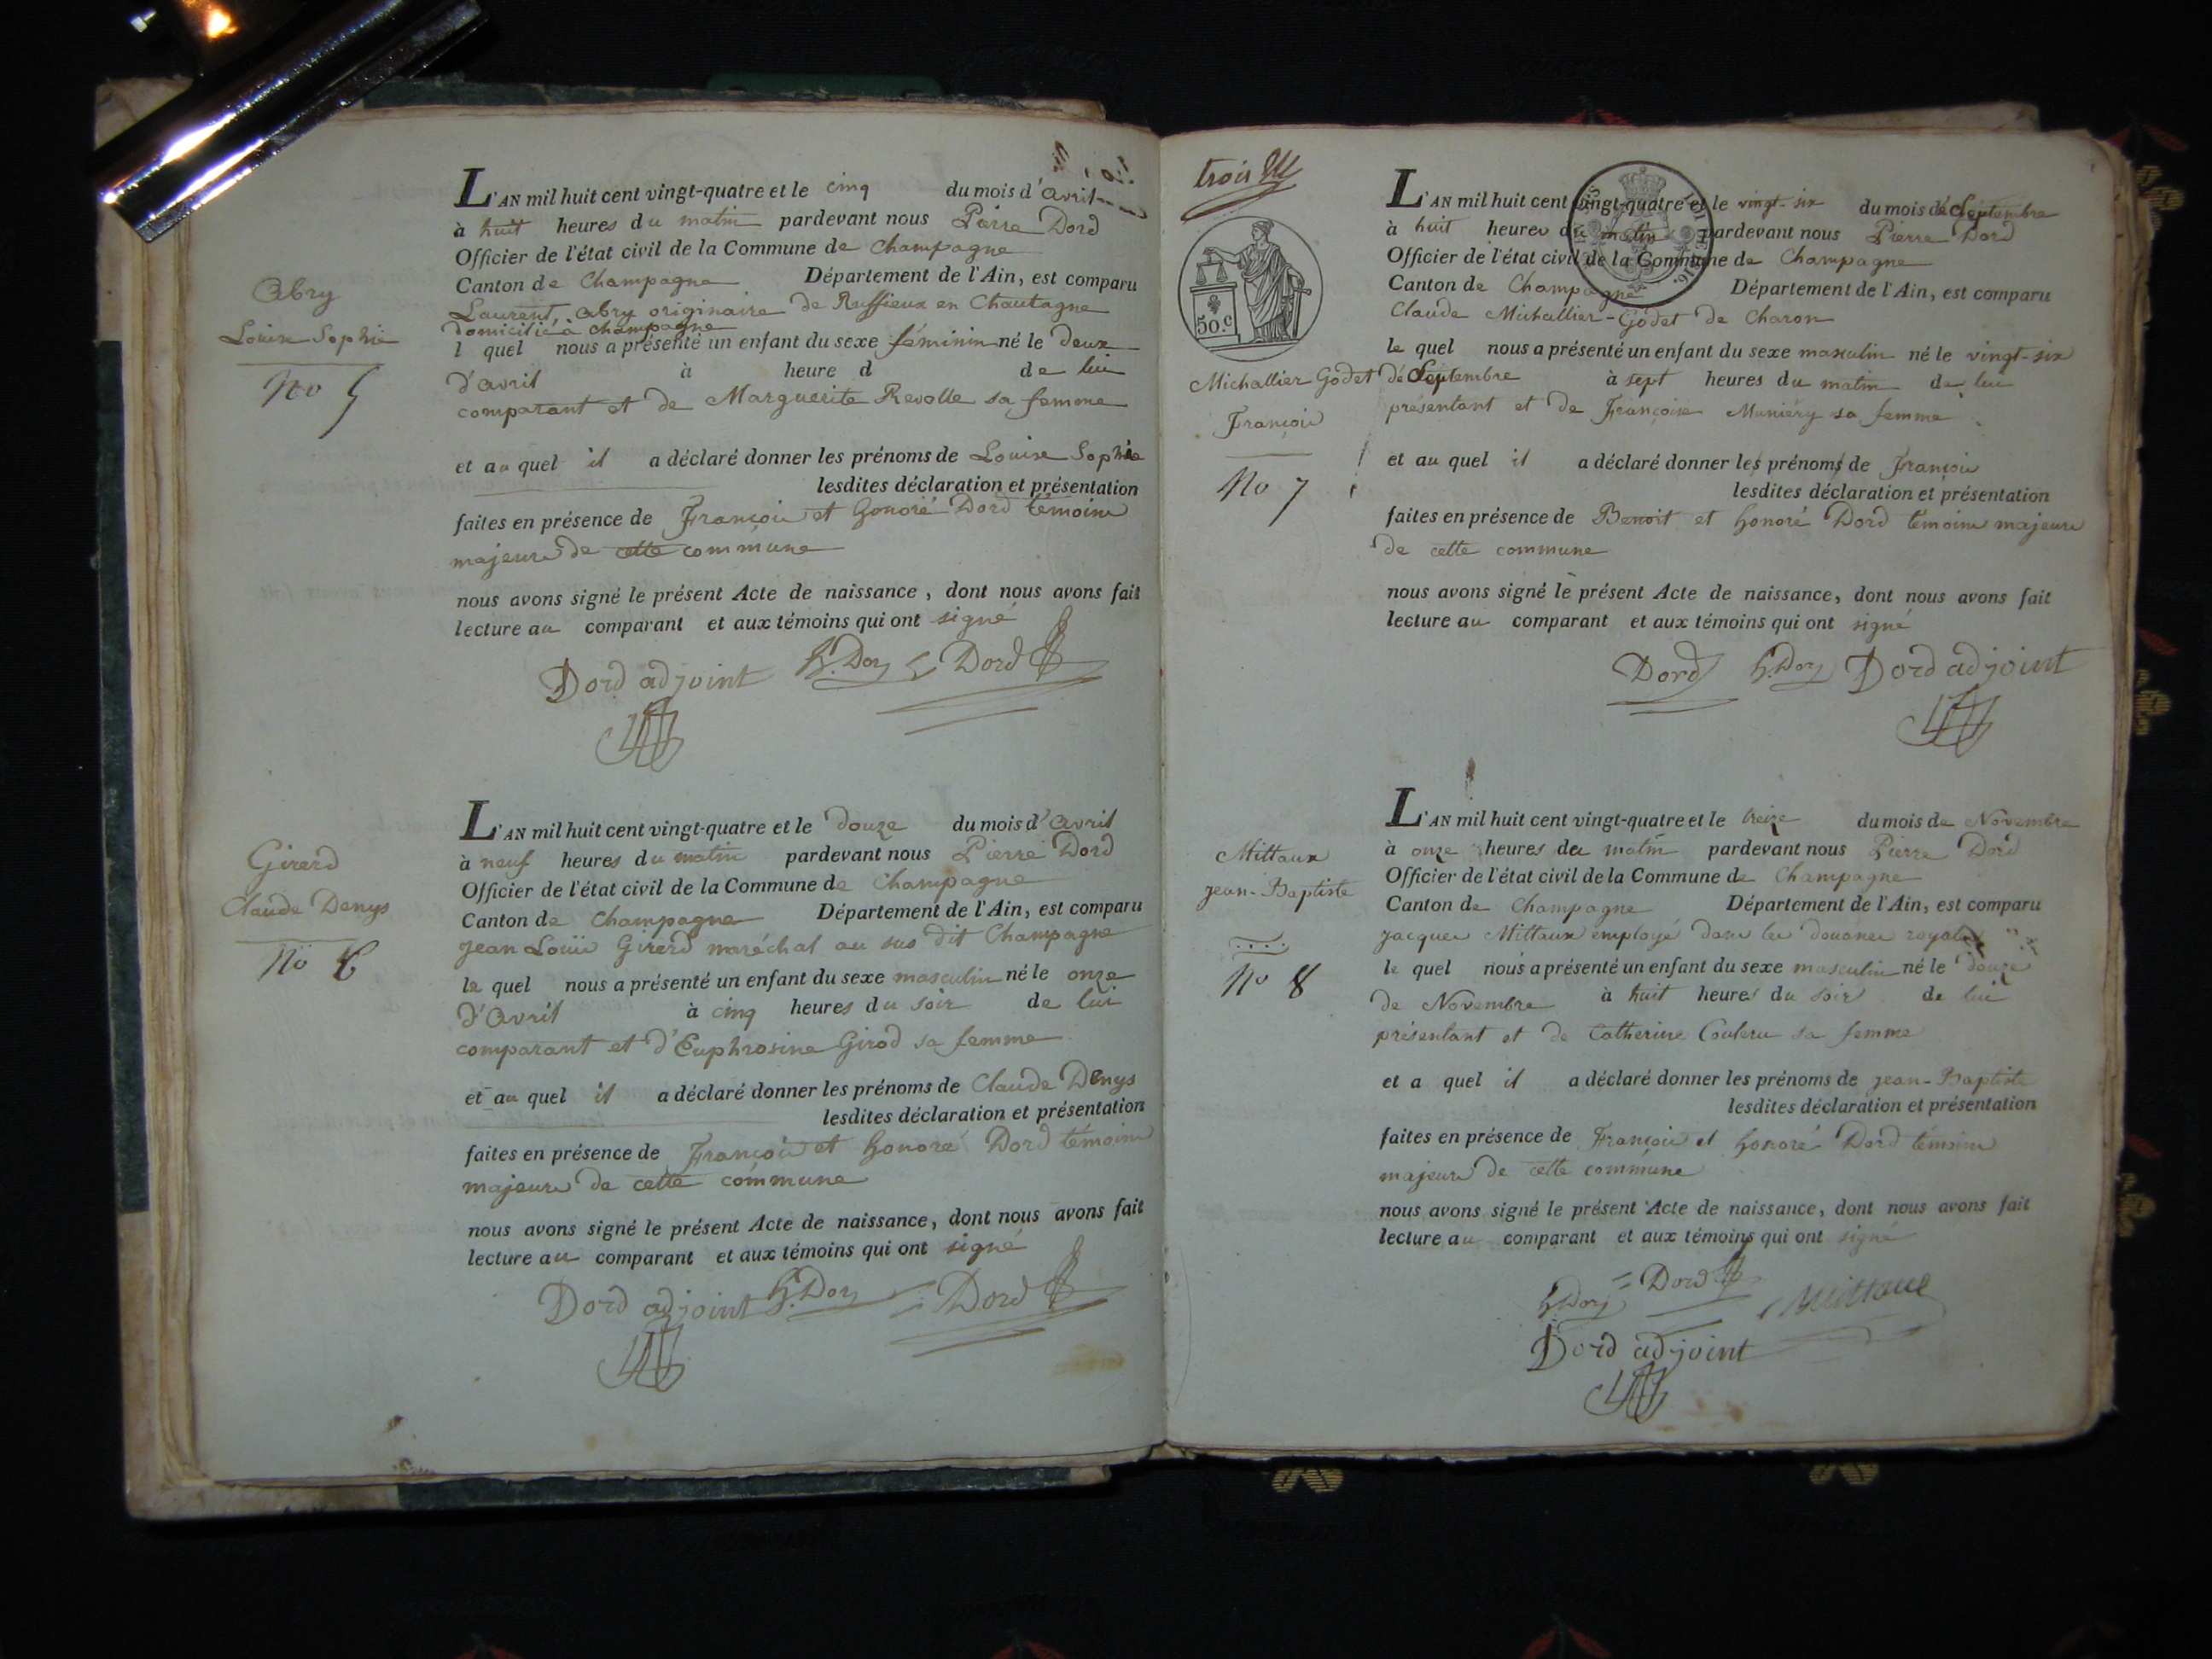 Abry
Louise Sophie
No 5
L'AN mil huit cent vingt-quatre et le cinq du mois d'avril
à huit heures du matin pardevant nous Pierre Dord
Officier de l'état civil de la Commune de Champagne
Canton de Champagne Département de l'Ain, est comparu
Laurent Abry originaire de Ruffieux en Chautagne
domicilié à champagne
l quel nous a présenté un enfant du sexe féminin né le deux
d'avril à heure d de lui
comparant et de Marguerite Revolle sa femme
et au quel il a déclaré donner les prénoms de Louise Sophie
lesdites déclaration et présentation
faites en présence de François et honoré Dord témoins
majeurs de cette commune
nous avons signé le présent Acte de naissance, dont nous avons fait
lecture au comparant et aux témoins qui ont signé
Dord adjoint h.Dord Dord
Girerd
Claude Denys
No 6
L'AN mil huit cent vingt-quatre et le douze du mois d'avril
à neuf heures du matin pardevant nous Pierre Dord
Officier de l'état civil de la Commune de Champagne
Canton de Champagne Département de l'Ain, est comparu
jean Louis Girerd maréchal au sus dit Champagne
le quel nous a présenté un enfant du sexe masculin né le onze
d'avril à cinq heures du soir de lui
comparant et d'Euphrosine Girod sa femme
et au quel il a déclaré donner les prénoms de Claude Denys
lesdites déclaration et présentation
faites en présence de François et honoré Dord témoins
majeurs de cette commune
nous avons signé le présent Acte de naissance, dont nous avons fait
lecture au comparant et aux témoins qui ont signé
Dord adjoint h.Dord Dord
trois
50.c
Michallier Godet
François
No 7
L'AN mil huit cent vingt-quatre et le vingt-six du mois de Septembre
à huit heures du matin pardevant nous Pierre Dord
Officier de l'état civil de la Commune de Champagne
Canton de Champagne Département de l'Ain, est comparu
Claude Michallier-Godet de Charon
le quel nous a présenté un enfant du sexe masculin né le vingt-six
de Septembre à sept heures du matin de lui
présentant et de Françoise Muniéry sa femme
et au quel il a déclaré donner les prénoms de François
lesdites déclaration et présentation
faites en présence de Benoit et honoré Dord témoins majeurs
de cette commune
nous avons signé le présent Acte de naissance, dont nous avons fait
lecture au comparant et aux témoins qui ont signé
Dord h.Dord Dord adjoint
Mittaux
jean-Baptiste
No 8
L'AN mil huit cent vingt-quatre et le treize du mois de Novembre
à onze heures du matin pardevant nous Pierre Dord
Officier de l'état civil de la Commune de Champagne
Canton de Champagne Département de l'Ain, est comparu
jacques Mittaux employé dans les douanes royales
le quel nous a présenté un enfant du sexe masculin né le douze
de Novembre à huit heures du soir de lui
présentant et de Catherine Couleru sa femme
et a quel il a déclaré donner les prénoms de jean-Baptiste
lesdites déclaration et présentation
faites en présence de François et honoré Dord témoins
majeurs de cette commune
nous avons signé le présent Acte de naissance, dont nous avons fait
lecture au comparant et aux témoins qui ont signé
h.Dord Dord Mittaux
Dord adjoint